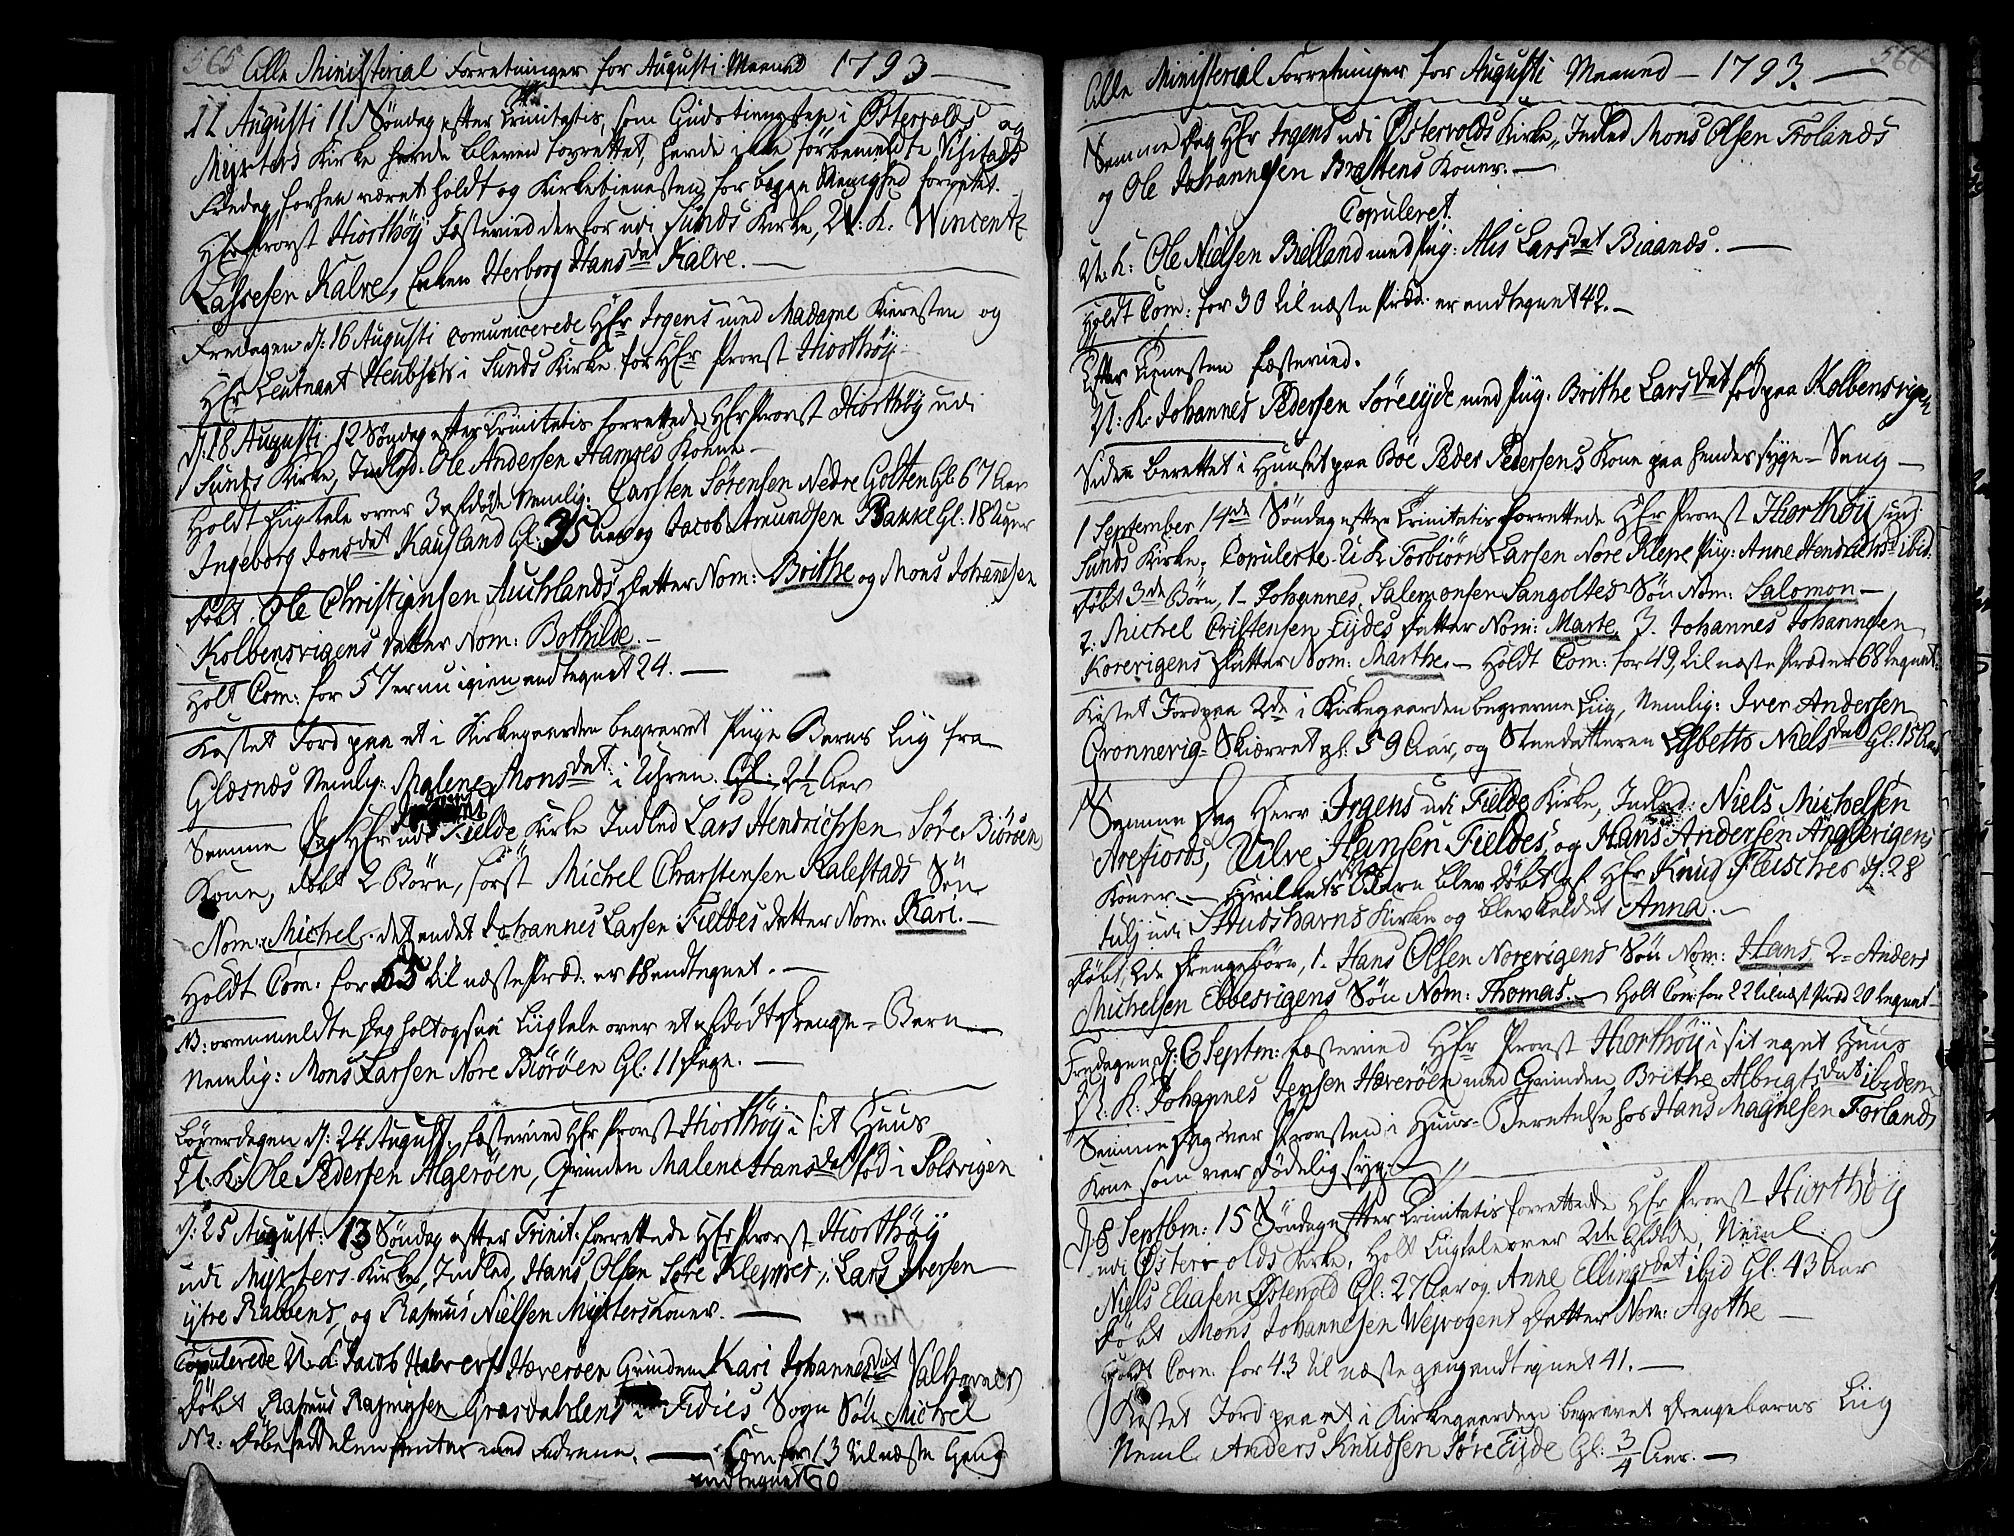 565 Alle Ministerial Forretninger for Augusti Maaned 1793 —
11 Augusti 11 Søndag efter Trinitatis, som Gudstienesten i Østervolds og
Myxters Kirke havde bleven forrettet, havde ikke forbemeldte Visitads
Fredag forhen været holdt og Kirketienesten for begge Menighed forrettet.
Hr Provst Hiorthöy Fæstevied derfor udi Sunds Kirke, U: K. Wincentz
Lassesen Kalve, Enken Herborg Hansdat Kalve. —
Fredagen d: 16 Augusti comunicerede Hr Irgens med Madame Kieresten og
Hr Leutnant i Sunds Kirke for Hr Provst Hiorthöy
d: 18 Augusti 12 Søndag efter Trinitatis forrettede Hr Provst Hiorthöy udi
Sunds Kirke, Indled. Ole Andersen Hamres Kone —
Holdt Liigtale over 3 afdøde Nemlig: Carsten Sörensen Nedre Golten Gl 67 Aar
Ingeborg Jonsdat Kausland Gl: 35 Aar og Jacob Amundsen Bakke Gl: 18 Uger
Döbt. Ole Christiansen Auchlands Datter Nom: Brithe og Mons Johannesen
Kolbensvigens Datter Nom: Bothilde. —
Holt Com: for 57 er nu igien andtegnet 24. —
Kastet Jord paa et i Kirkegaarden begravet Pige Barns Liig fra
Glæsnæs Nemlig: Malene Monsdat: i Uhren. Gl: 2½ Aar
Samme Dag Hr Irgens udi Fielde Kirke Indled Lars Hendrichsen Søre Biöröen
Kone, döbt 2 Börn, först Michel Charstensen Kalestads Sön
Nom: Michel. det andet Johannes Larsen Fieldes datter Nom: Kari. —
Holdt Com: for 65 til næste Præd. er 18 andtegnet. —
N: ovenmeldte Dag holt ogsaa Liigtale over et afdödt Drenge-Barn
Nemlig: Mons Larsen Nore Biöröen Gl: 11 Dage. —
Löverdagen d: 24 August: fæstevied Hr Provst Hiorthöy i sit Huus
U: K: Ole Pedersen Algeröen, Qvinden Malene Hansdat föd i Solsvigen
d: 25 August: 13 Søndag efter Trinit: forrettede Hr Provst Hiorthöÿ
udi Myxters Kirke, Indled, Hans Olsen Søre Kleppes, Lars Iversen
ytre Rabbens, og Rasmus Nielsen Myxters Koner. —
Copulerede U. K: Jacob Halvers: Haveröen Qvinden Kari Johannesdat Valhavnes
Döbt Rasmus Rasmusen Grasdahlens i Fidies Sogn Sön Michel
Nb: Döbeseddelen sendes med Fadrene. — Com for 13 til næste Gang
andtegnet 50
566
Alle Ministerial Forretninger for Augusti Maaned — 1793. —
Samme Dag Hr Irgens udi Østervolds Kirke, Indled Mons Olsen Trolands
og Ole Johannesen Brattens Koner. —
Copuleret.
U. K: Ole Nielsen Bielland med Pig: Alis Larsdat Biaanæs. —
Holdt Com: for 30 til næste Præd: er andtegnet 42. —
Efter Tienesten Fæstevied.
U: K: Johannes Pedersen Söreeyde med Pig. Brithe Larsdat föd paa Kolbensvigen
Siden Berettet i Huuset paa Böe Peder Pedersens Kone paa hendes syge-Seng —
1 September 14de Søndag efter Trinitatis forrettede Hr Provst Hiorthöy udi
Sunds Kirke. Copulerte U. K Torbiörn Larsen Nore Kleppe Pig: Anne Hendrichsd: ibid.
döbt 3de Börn, 1- Johannes Salemonsen Sangoltes Sön Nom: Salomon —
2. Michel Cristensen Eydes Datter Nom: Marte, 3. Johannes Johannesen
Korevigens Datter Nom: Marthe. — Holdt Com: for 49, til næste Præd er 68 tegnet.
Kastet Jord paa 2de i Kirkegaarden begravne Liig, Nemlig: Iver Andersen
Gronnevig-Skiæret gl: 59 Aar, og Steedatteren Lisbetto Nielsdat Gl: 15 Aar
Samme Dag Herr Irgens udi Fielde Kirke, Indled: Niels Michelsen
Arefiords, Tilve Hansen Fieldes, og Hans Andersen Anglevigens
Koner — Hvilkets Barn blev döbt af Hr Knud Fleischer d: 28
Julj udi Studshavns Kirke og blev kaldet Anna. —
Döbt, 2de Drengebörn, 1- Hans Olsen Norevigens Sön Nom: Hans 2- Anders
Michelsen Ebbesvigens Sön Nom: Thomas. — Holt Com: for 22 til næst Præd 20 tegnet —
Fredagen d: 6 Septm: fæstevied Hr Provst Hiorthöÿ i sit eget Huus
U. K: Johannes Jensen Haveröen med Qvinden Brithe Albrigtsdat ibidem
Samme Dag var Provsten i Huus-Berettelse hos Hans Magnesen Forlands
Kone som var Dödelig syg.
d: 8 Septbm: 15 Søndag efter Trinitatis forrettede Hr Provst Hiorthöy
udi Østervolds Kirke, Holt Liigtale over 2de Afdöde, Neml:
Niels Eliasen Østevold Gl: 27 Aar og Anne Ellingsdat ibid Gl: 43 Aar
Döbt Mons Johannesen Wepvogens Datter Nom: Agothe —
Holdt Com. for 43 til næste gang andtegnet 41. —
Kastet Jord paa et i Kirkegaarden begravet Drengebarns Liig
Neml. Anders Knudsen Søre Eyde Gl: 3/4 Aar. —